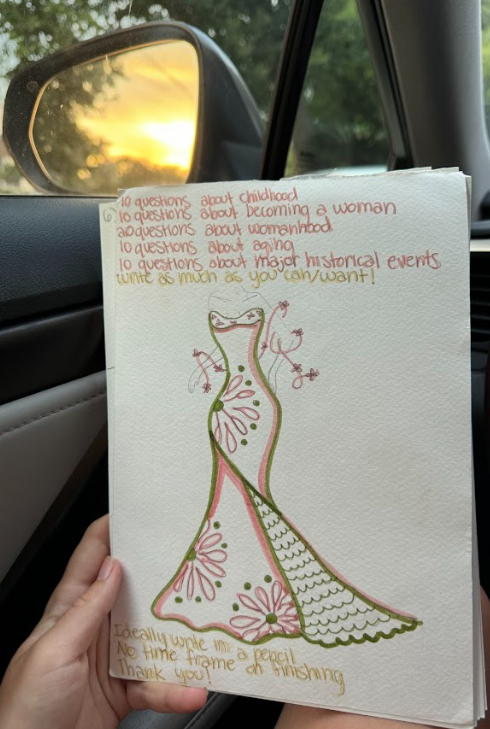 10 questions about childhood
10 questions about becoming a woman
20 questions about womanhood
10 questions about aging
10 questions about major historical events
write as much as you can/want!
Ideally write in a pencil
No time frame on finishing
Thank you!